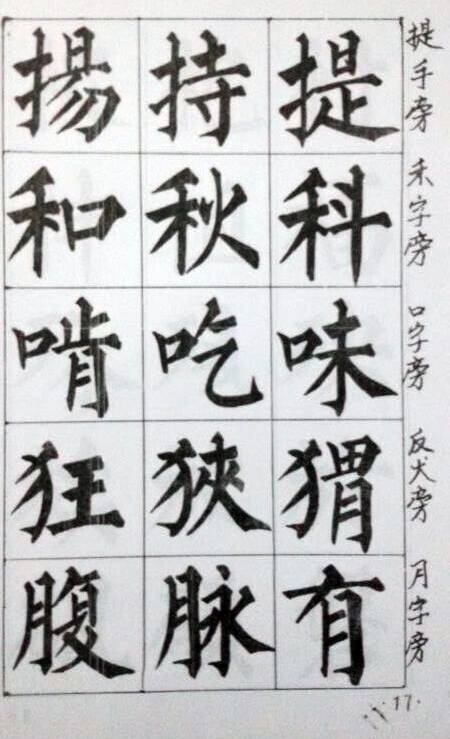 提手旁
提持揚
禾字旁
科秋和
口字旁
味吃啃
反犬旁
猬狹狂
月字旁
有脉腹
17.